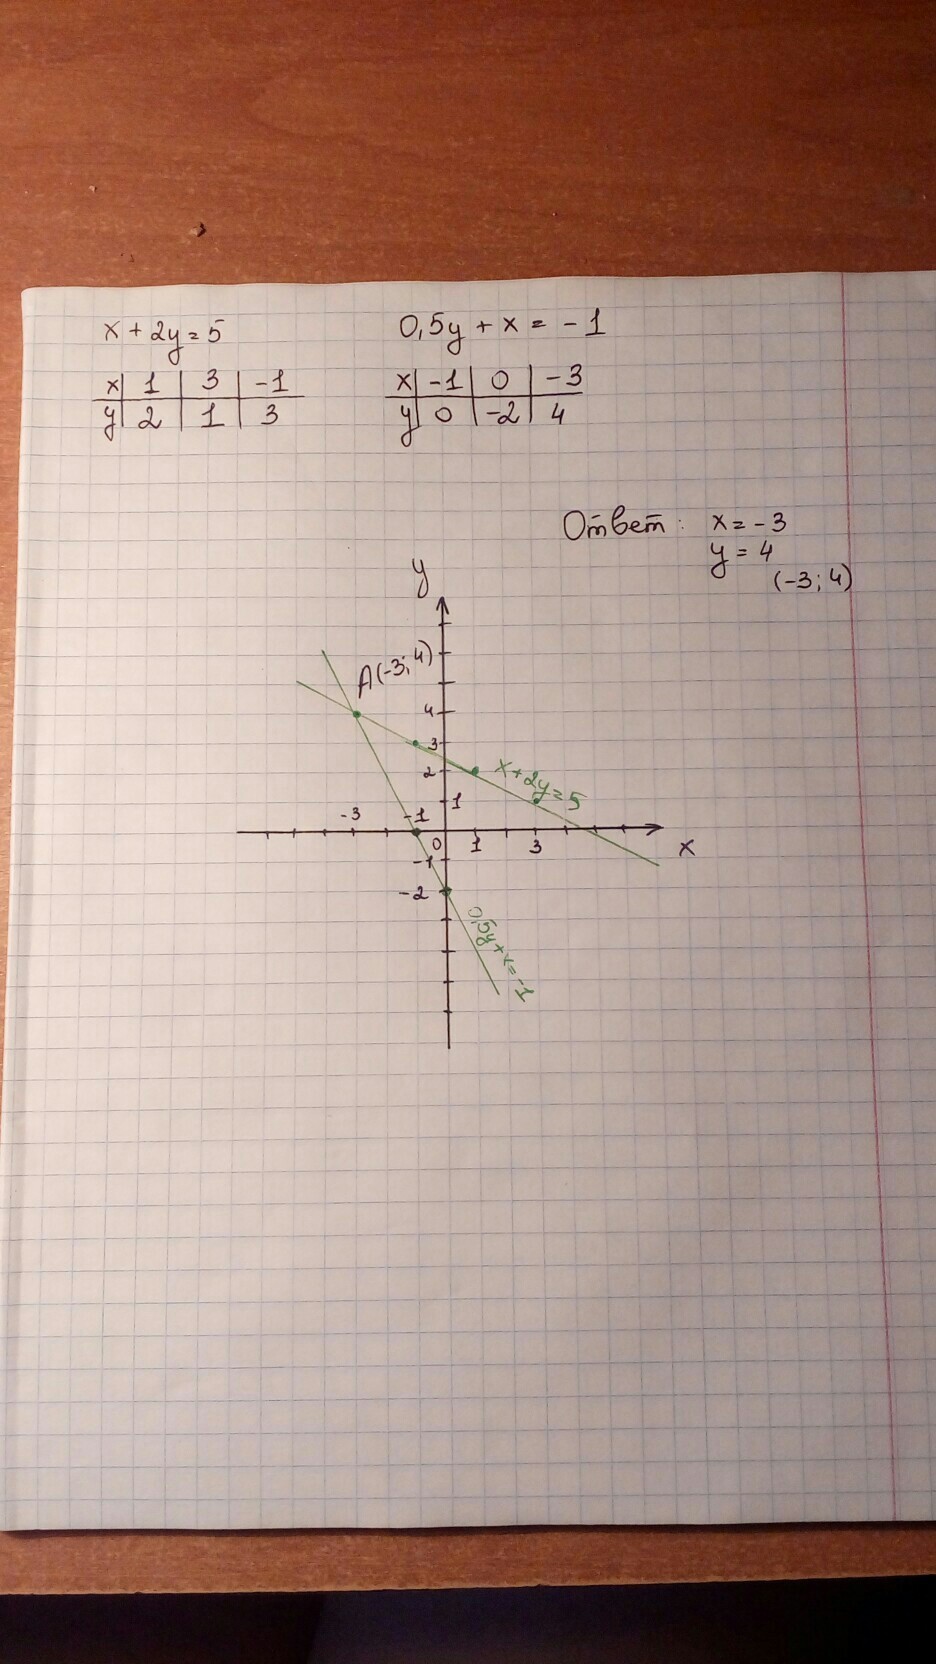 x + 2y = 5
x | 1 | 3 | -1
y | 2 | 1 | 3
0,5y + x = -1
x | -1 | 0 | -3
y | 0 | -2 | 4
Ответ: x = -3
y = 4
(-3; 4)
y
A(-3; 4)
4
3
2
x + 2y = 5
1
-3 -1
0 1 3 x
-1
-2
0,5y + x = -1